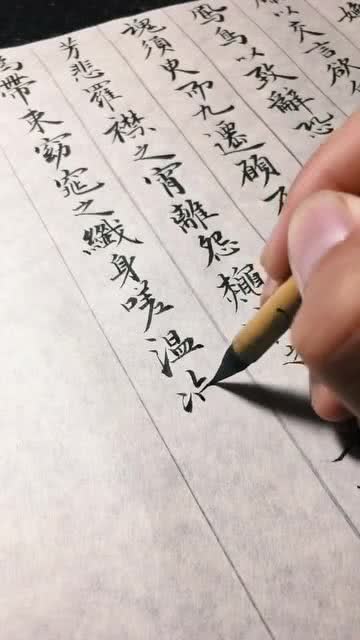 以交言欲
鳳鳥以致辭恐
魂須臾而九遷願
芳悲羅襟之宵離怨龝
為帶束窈窕之纖身嗟温